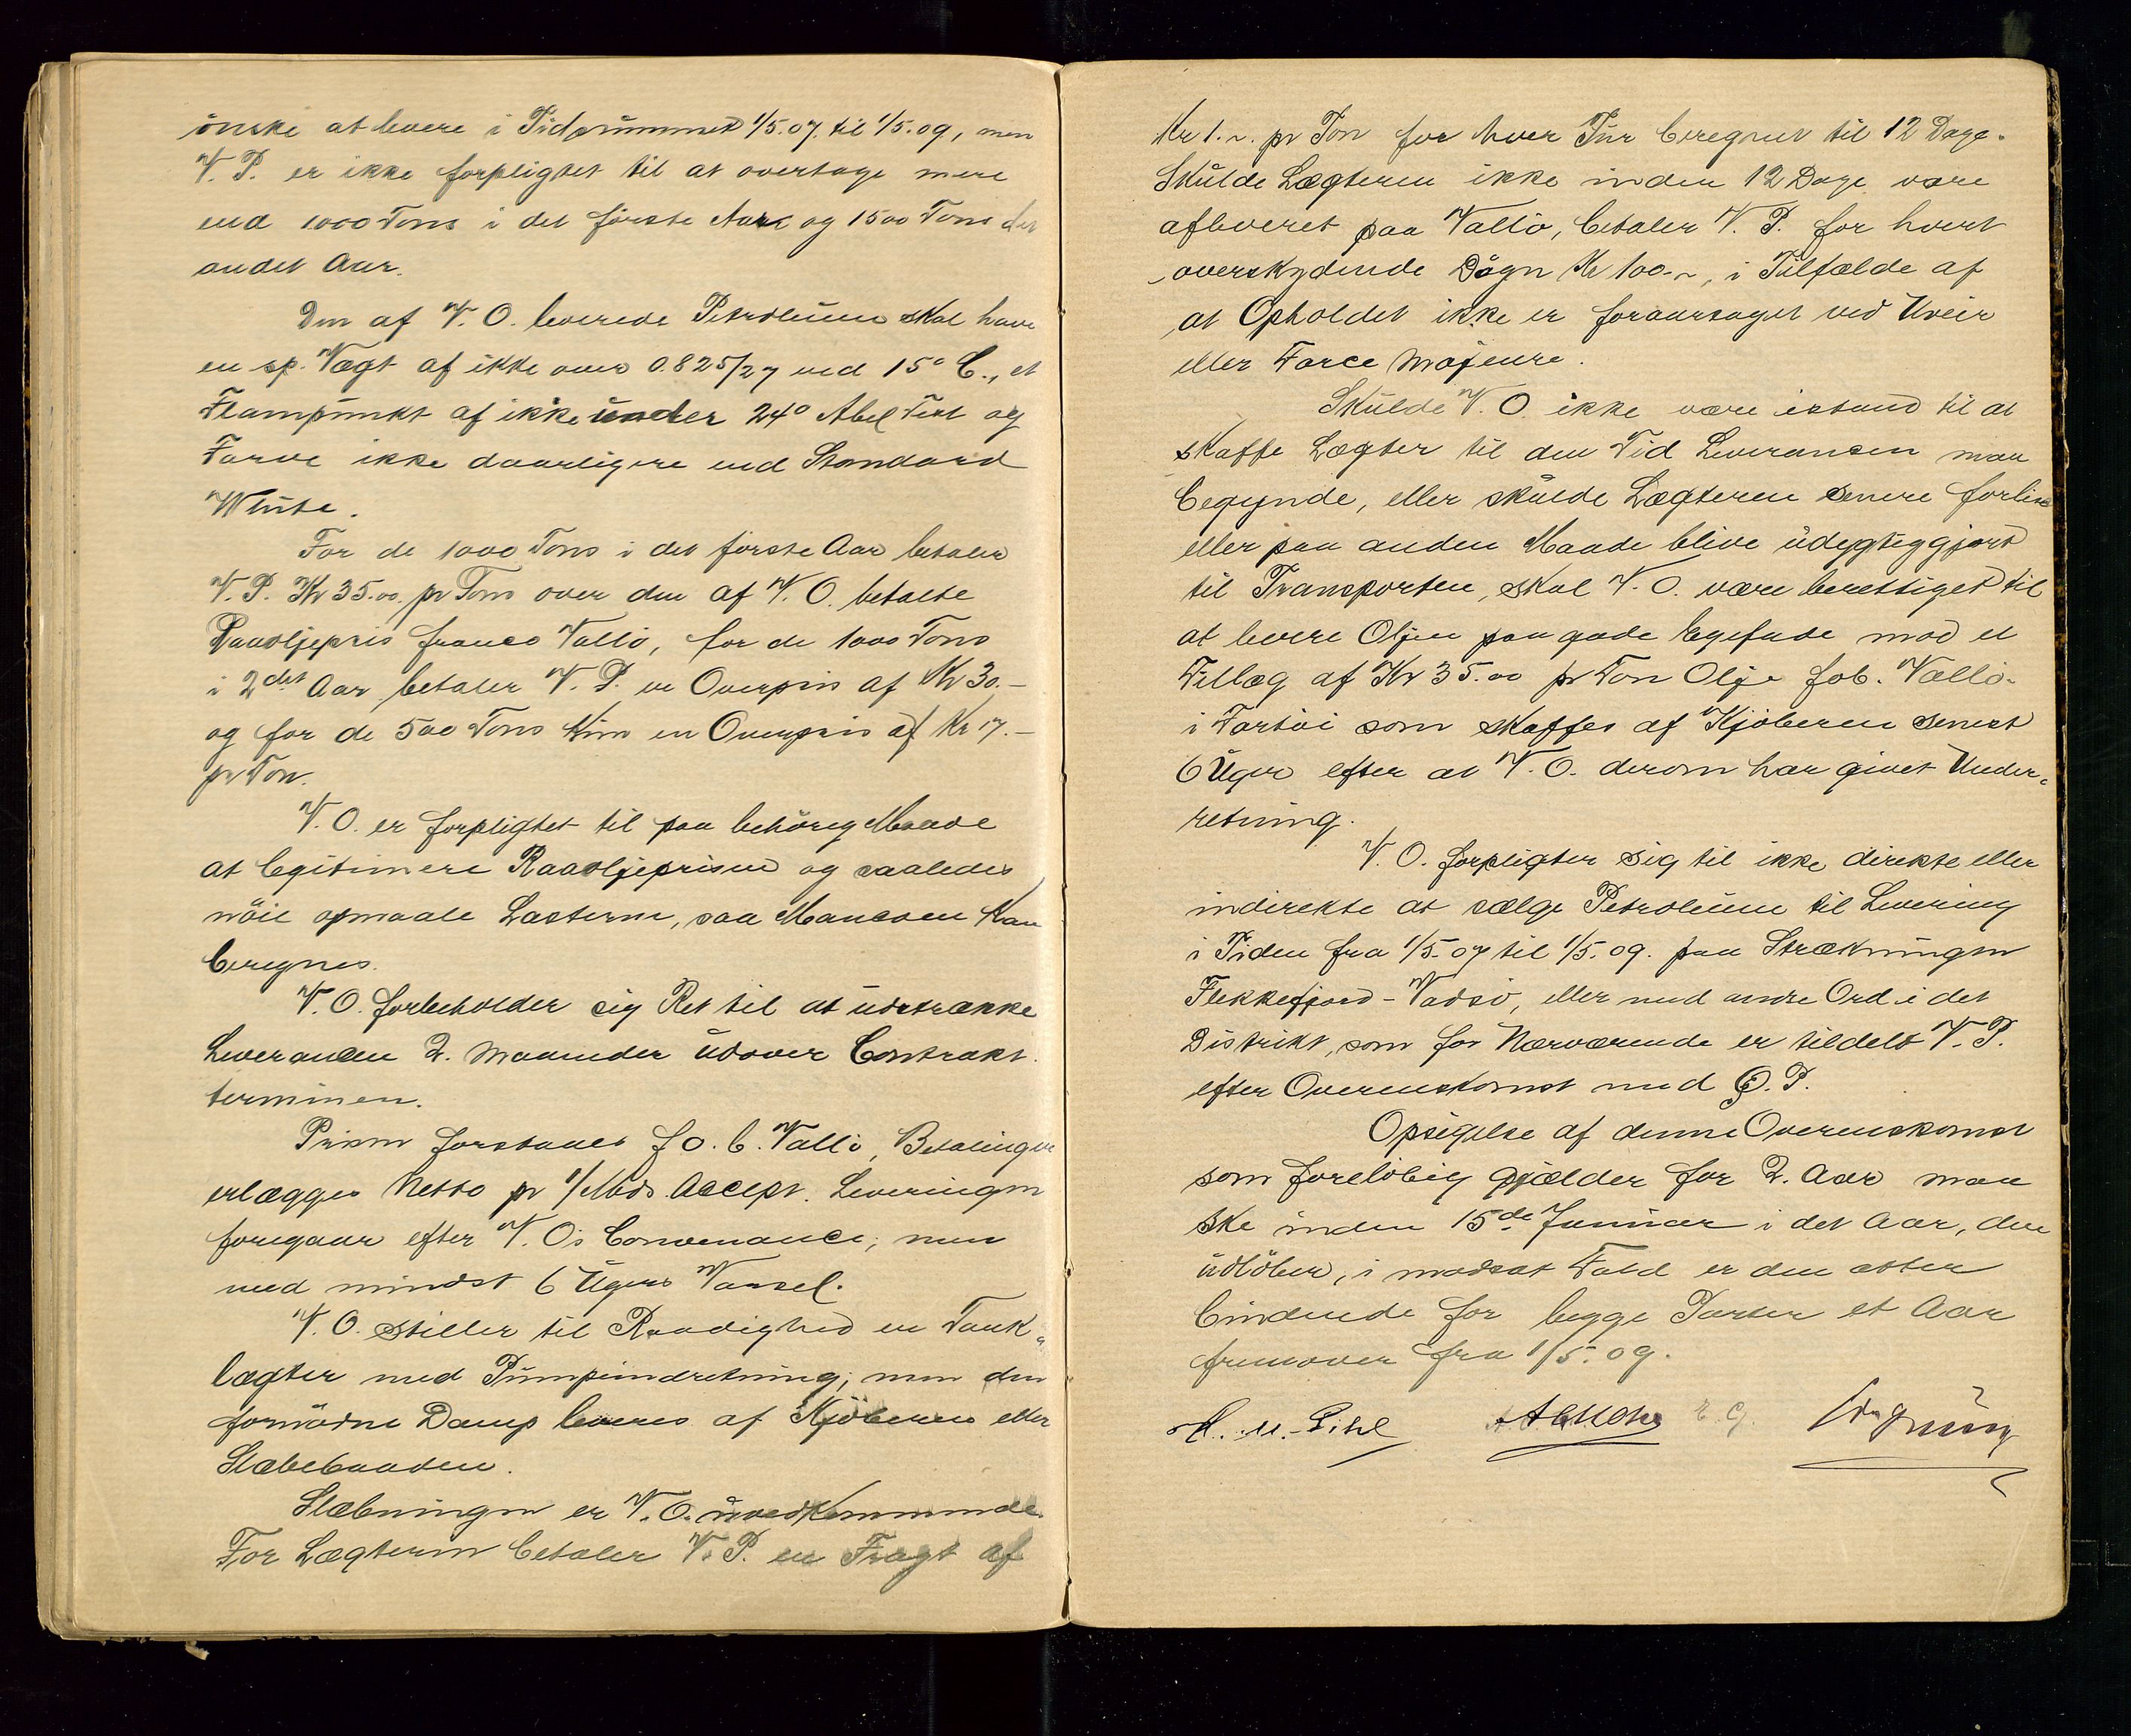 önske at levere i Tidsrummet 1/5.07. til 1/5.09, men
V. P. er ikke forpligtet til at overtage mere
end 1000 Tons i det förste Aar og 1500 Tons det
andet Aar.
Den af V. O. leverede Petroleum skal have
en sp. Vægt af ikke over 0.825/27 ved 15° C., et
Flampunkt af ikke under 24° Abel Test og
Farve ikke daarligere end Standard
White.
For de 1000 Tons i det förste Aar betaler
V. P. Kr 35.00. pr Tons over den af V. O. betalte
Raaoljepris franco Vallö, for de 1000 Tons
i 2det Aar betaler V. P. en Overpris af Kr 30.-
og for de 500 Tons kun en Overpris af Kr 17.-
pr Ton.
V. O. er forpligtet til paa behörig Maade
at legitimere Raaoljeprisen og saaledes
nöie opmaale Lasterne, saa Mancoen kan
beregnes.
V. O. forbeholder sig Ret til at udstrække
Leverancen 2. Maaneder udover Contrakt
terminen.
Prisen forstaaes f o. b. Vallö, Betalingen
erlægges Netto pr 1/Mds. Accept. Leveringen
foregaar efter V. O's Convenance, men
med mindst 6 Ugers Varsel.
V. O. stiller til Raadighed en Tank-
lægter med Pumpeindretning; men den
fornödne Damp leveres af Kjöberen eller
Slæbebaaden.
Slæbningen er V. O. uvedkommende.
For Lægteren betaler V. P. en Fragt af
Kr 1.- pr Ton for hver Tur beregnet til 12 Dage.
Skulde Lægteren ikke inden 12 Dage være
afleveret paa Vallö, betaler V. P. for hvert
overskydende Dögn Kr 100.-, i Tilfælde af
at Opholdet ikke er foraarsaget ved Uveir
eller Force Majeure.
Skulde V. O. ikke være istand til at
skaffe Lægter til den Tid Leverancen maa
begynde, eller skulde Lægteren senere forlise
eller paa anden Maade blive udygtiggjort
til Transporten, skal V. O. være berettiget til
at levere Oljen paa gode Egefade mod et
Tillæg af Kr 35.00 pr Ton Olje fob. Vallö
i Fartöi som skaffes af Kjöberen senest
6 Uger efter at V. O. derom har givet Under-
retning.
V. O. forpligter sig til ikke direkte eller
indirekte at sælge Petroleum til Levering
i Tiden fra 1/5.07 til 1/5.09. paa Strækningen
Flekkefjord - Vadsö, eller med andre Ord i det
Distrikt, som for Nærværende er tildelt V. P.
efter Overenskomst med Ö. P.
Opsigelse af denne Overenskomst
som forelöbig gjælder for 2. Aar maa
ske inden 15de Januar i det Aar, den
udlöber, i modsat Fald er den atter
bindende for begge Parter et Aar
fremover fra 1/5.09.